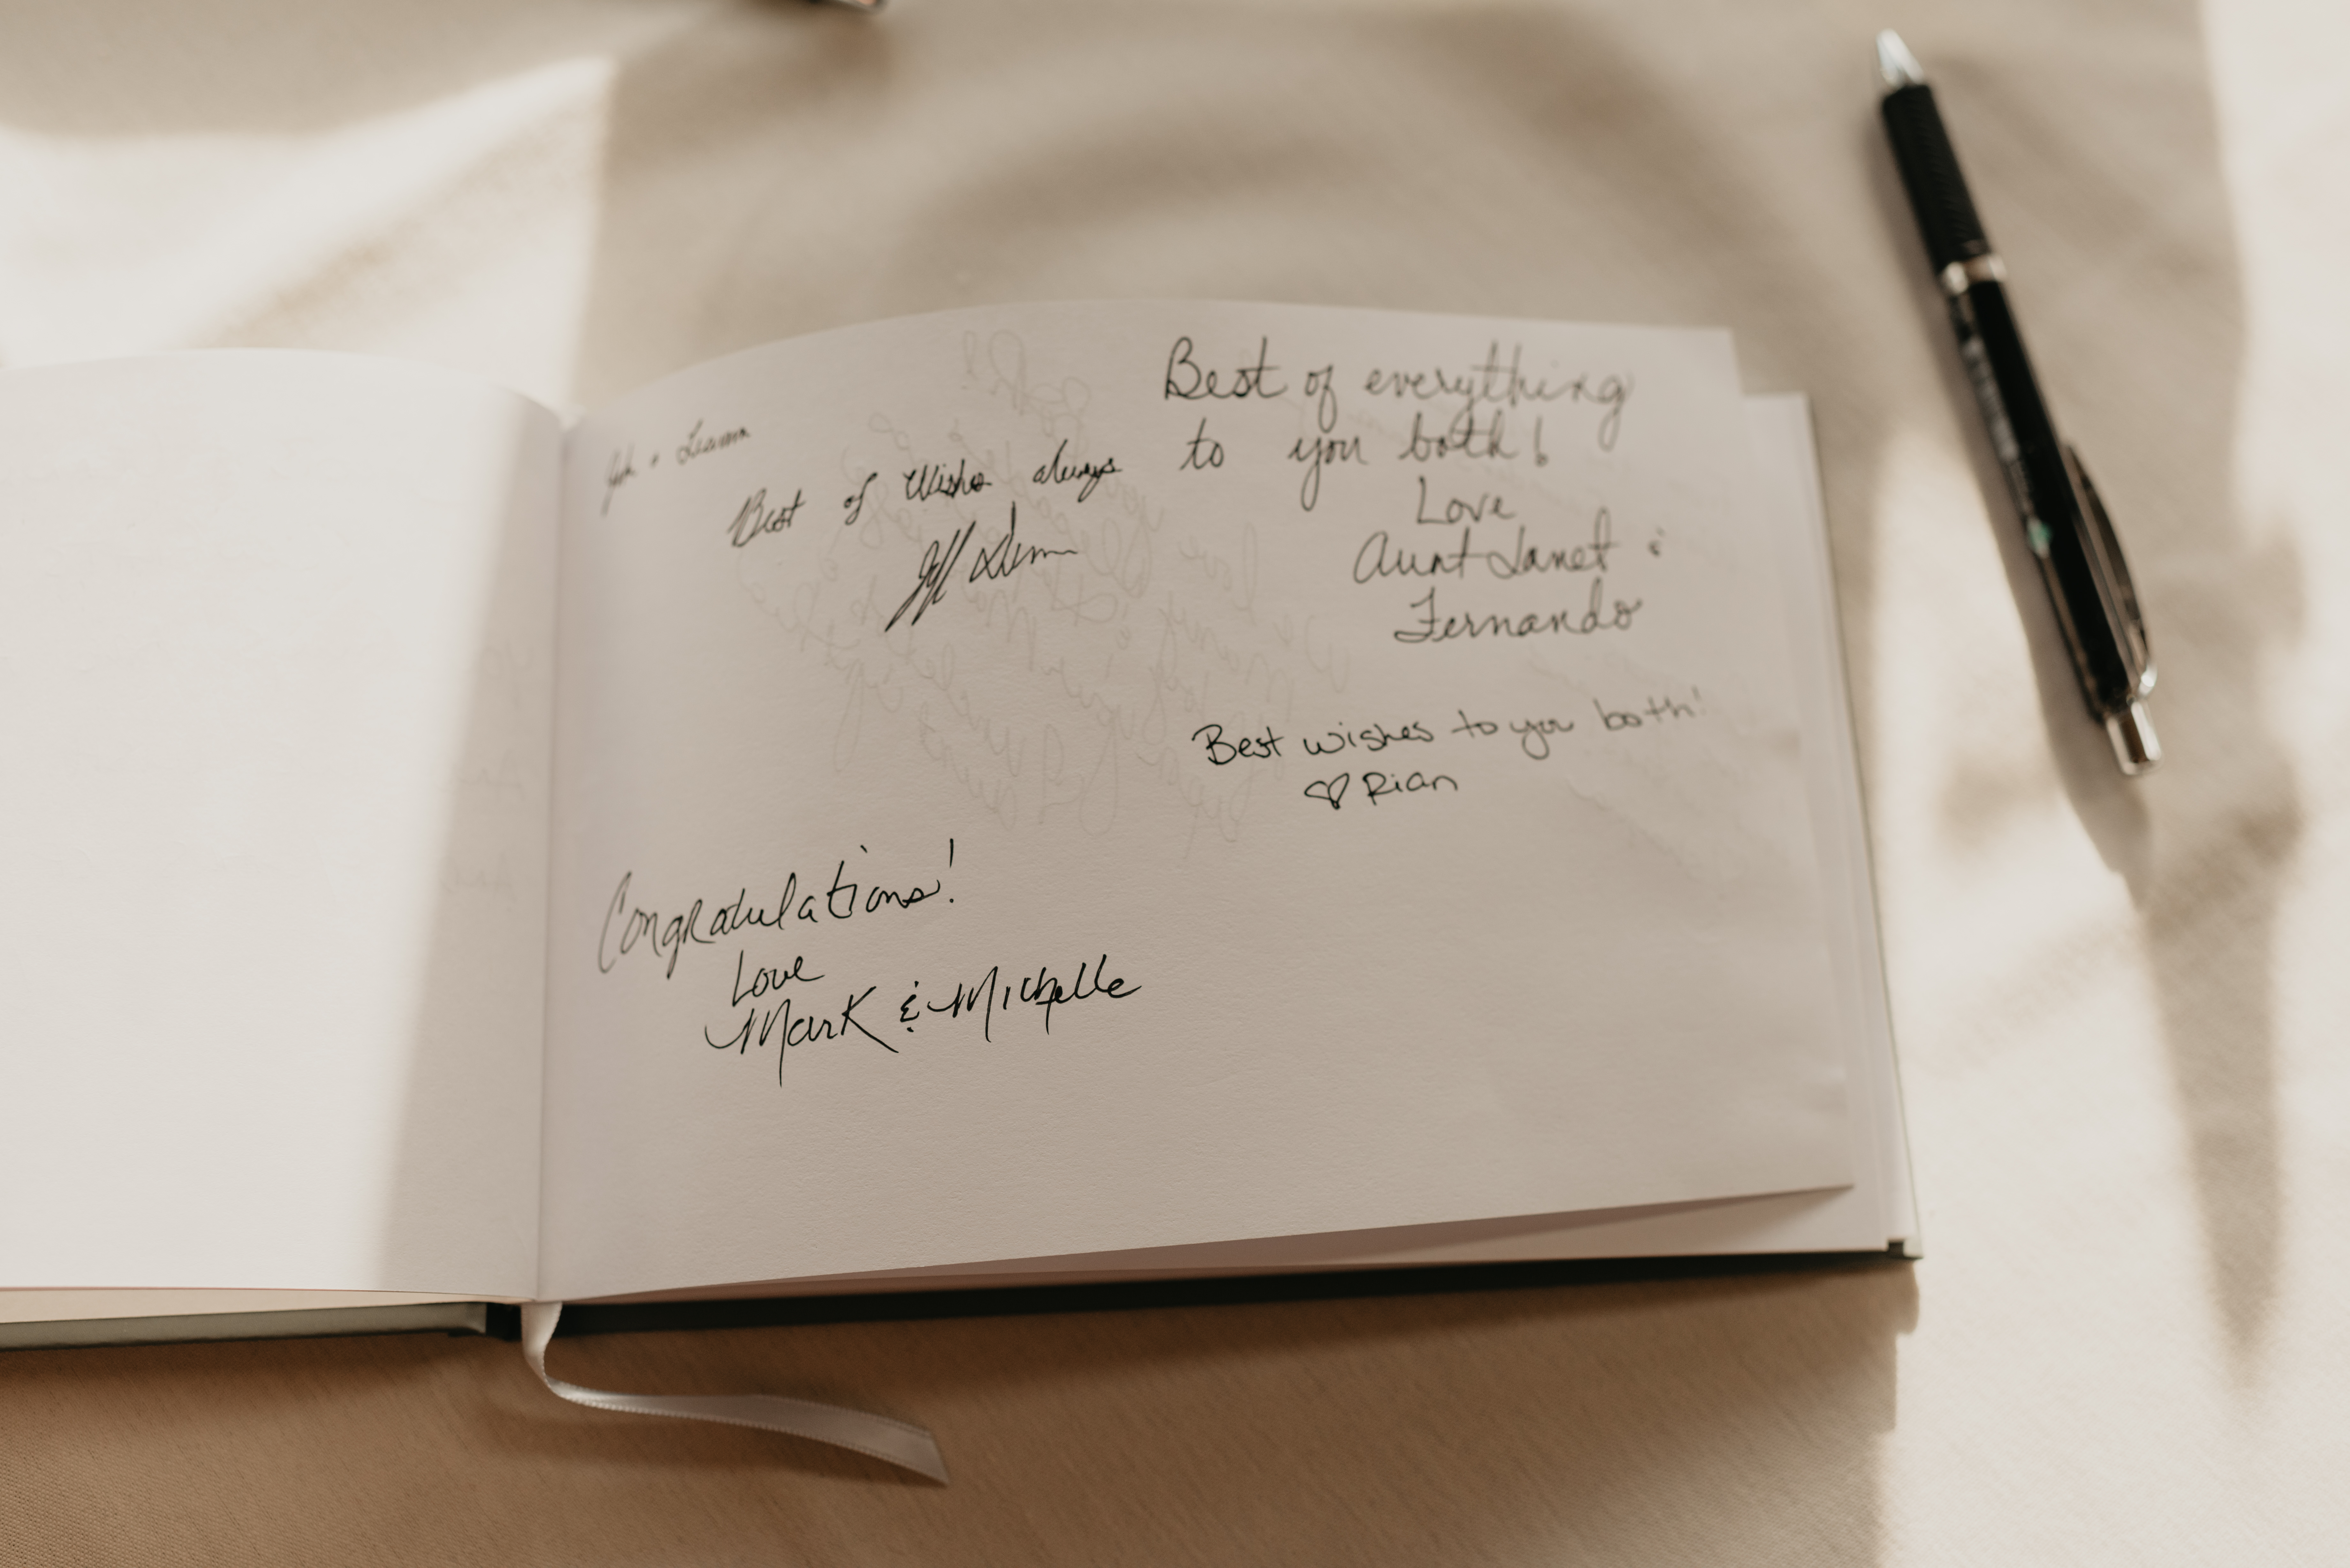 Best of Wishes always
Best of everything
to you both!
Love
Aunt Janet &
Fernando
Best wishes to you both!
♡ Rian
Congratulations!
Love
Mark & Michelle